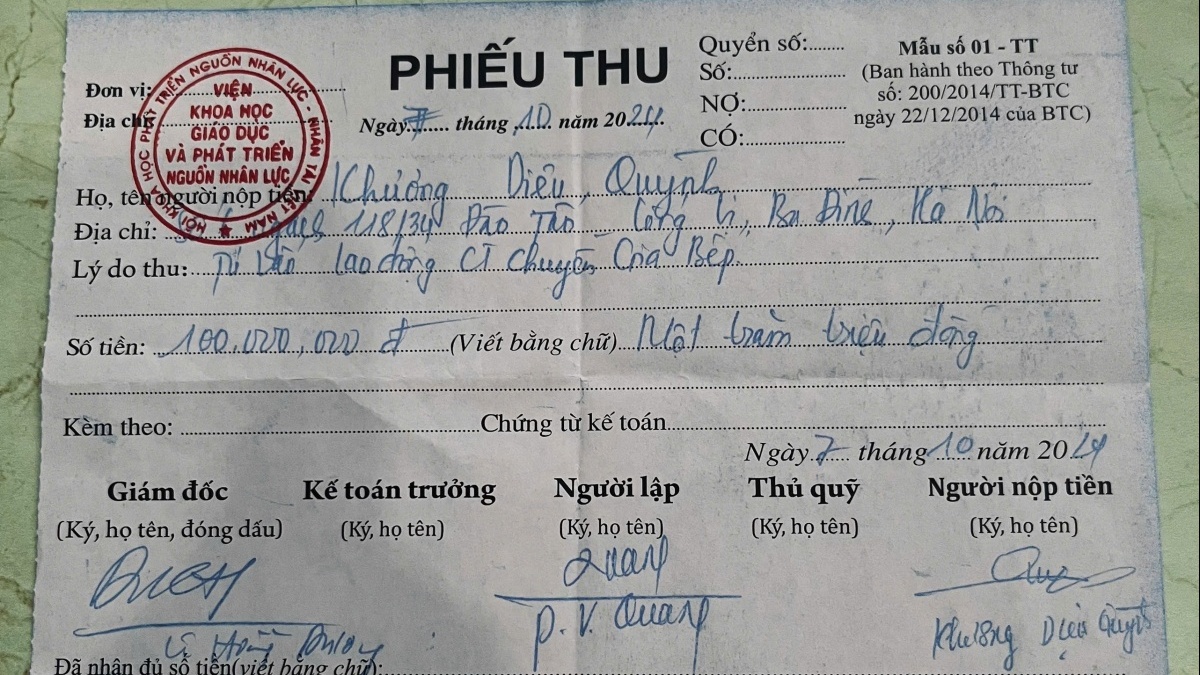 PHIẾU THU
Quyển số:........
Số:
NỢ:
CÓ:
Mẫu số 01 - TT
(Ban hành theo Thông tư
số: 200/2014/TT-BTC
ngày 22/12/2014 của BTC)
Đơn vị:
Địa chỉ:
HỘI KHOA HỌC PHÁT TRIỂN NGUỒN NHÂN LỰC - NHÂN TÀI VIỆT NAM
VIỆN
KHOA HỌC
GIÁO DỤC
VÀ PHÁT TRIỂN
NGUỒN NHÂN LỰC
Ngày 7 tháng 10 năm 2024.
Họ, tên người nộp tiền: Khương Diệu Quỳnh
Địa chỉ: 118/34 Đào Tấn, Cống Vị, Ba Đình, Hà Nội
Lý do thu: Tư Vấn lao động CĪ chuyên Của Bếp
Số tiền: 100.000,000 đ (Viết bằng chữ) Một trăm triệu đồng
Kèm theo: Chứng từ kế toán
Ngày 7 tháng 10 năm 2024
Giám đốc Kế toán trưởng Người lập Thủ quỹ Người nộp tiền
(Ký, họ tên, đóng dấu) (Ký, họ tên) (Ký, họ tên) (Ký, họ tên) (Ký, họ tên)
Quang
P. V. Quang
Khương Diệu Quỳnh
Đã nhận đủ số tiền(viết bằng chữ):